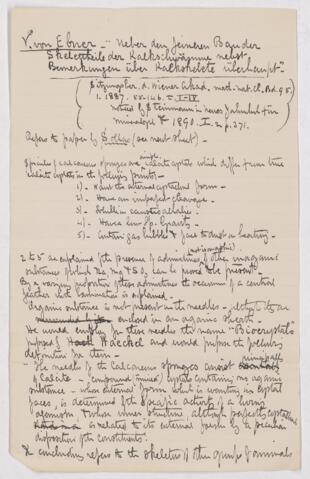 V. von Ebner — "Ueber den feineren Bau der
Skelettheile der Kalkschwämme nebst
Bemerkungen über Kalkskelete überhaupt".
Sitzungsber. d. Wiener Akad. math-nat. Cl. Bd. 95.
1. 1887. 55-146. T. I-IV
noted by Steinmann in neues Jahrbuch für
Mineralogie 1890. I. p. 271.
Refers to paper by Sollas (see next sheet) —
Spicules of calcareous sponges are simple calcite crystals which differ from true
calcite crystals in the following points: —
1) - Want the external crystalline form —
2) - Have an imperfect cleavage.
3) - Soluble in caustic alkalies.
4) - Have a low Sp. Gravity.
5) - Contain gas bubbles & on heating —
2 to 5 are explained by the presence of admixtures of other inorganic
substances of which Na, Mg & SO3 can be proved to be present.
By a varying proportion of these admixtures the occurrence of a central
is explained —
Organic substance is not present in the needles — they are
enclosed in an organic sheath —
He would employ for these needles the name "Biocrystals"
proposed by Haeckel and would propose the following
definition for them —
"The needles of the calcareous sponges consist principally
of Calcite — (compound mixed) crystals containing no organic
substance — whose external form which is wanting in crystal
faces, is determined by the specific activity of a living
organism & whose inner structure, although perfectly crystalline
is related to its external form by a peculiar
disposition of the constituents.
In conclusion refers to the skeletons of other groups of animals